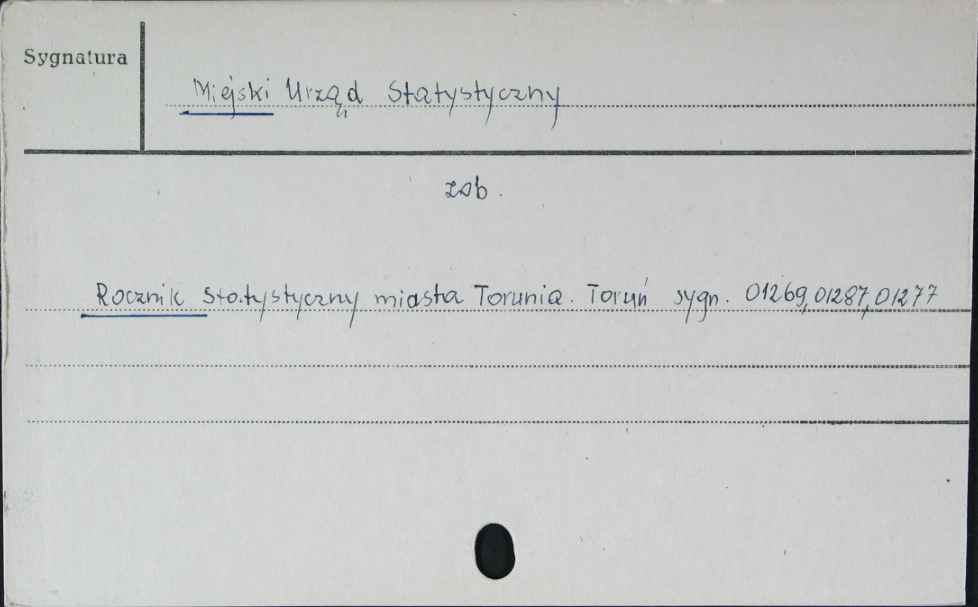 Sygnatura
Miejski Urząd Statystyczny
zob.
Rocznik Statystyczny miasta Torunia. Toruń sygn. 01269,01287,01277